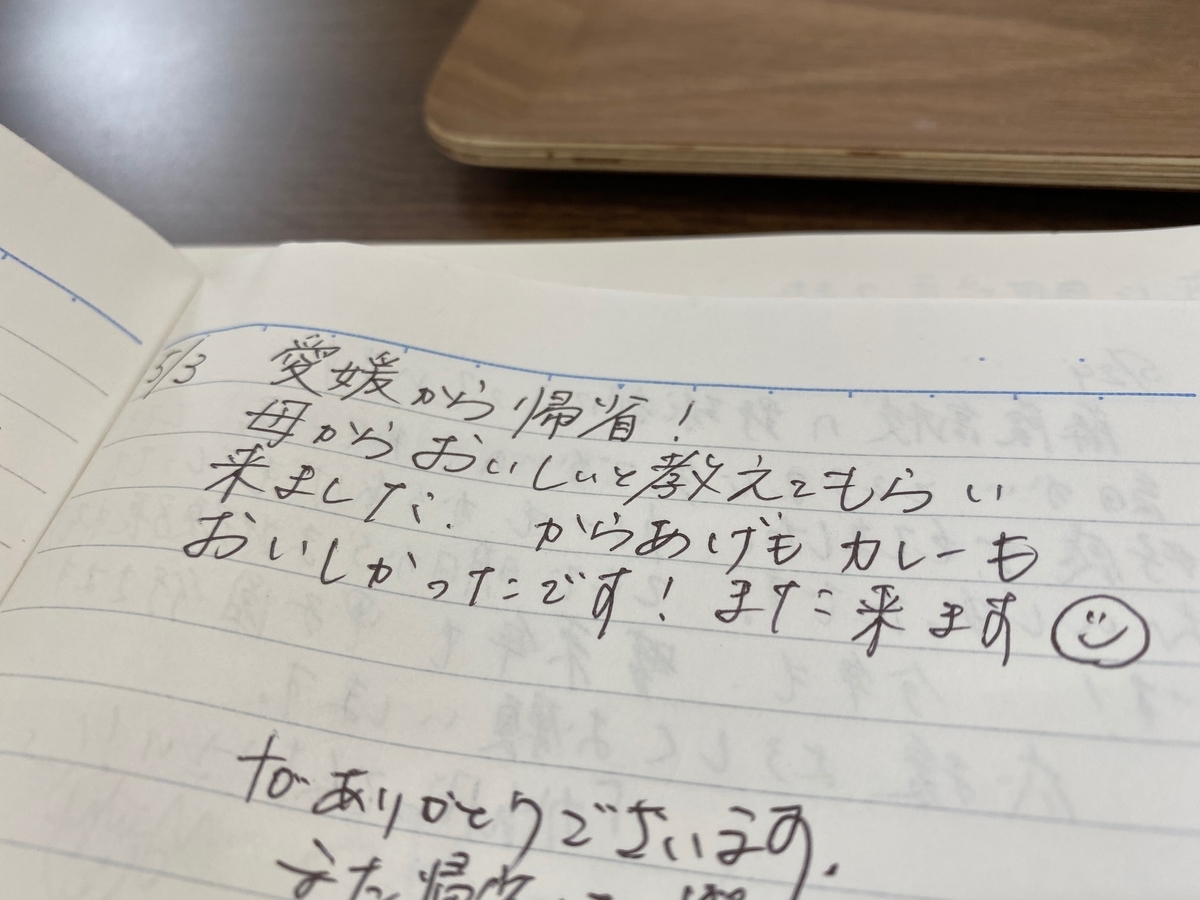 5/3 愛媛から帰省!
母からおいしいと教えてもらい
来ました. からあげもカレーも
おいしかったです! また来ます
ありがとうございます.
また帰省